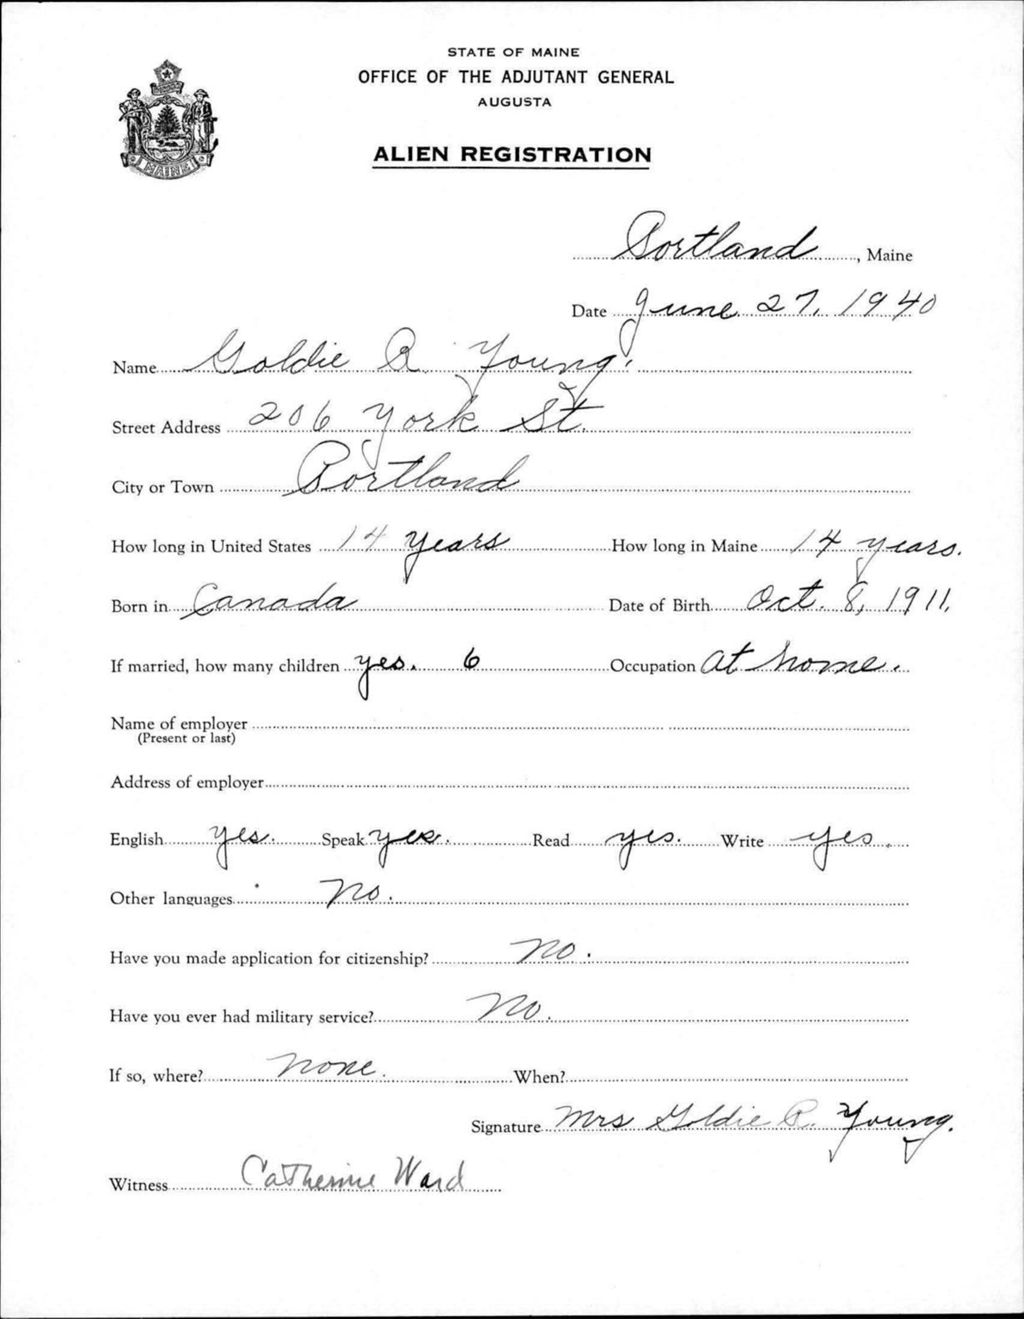 STATE OF MAINE
OFFICE OF THE ADJUTANT GENERAL
AUGUSTA
ALIEN REGISTRATION
MAINE
Portland, Maine
Date June 27, 1940
Name Goldie R. Young.
Street Address 206 York St.
City or Town Portland
How long in United States 14 years How long in Maine 14 years.
Born in Canada Date of Birth Oct. 8, 1911.
If married, how many children yes. 6 Occupation At home.
Name of employer
(Present or last)
Address of employer
English yes. Speak yes. Read yes. Write yes.
Other languages no.
Have you made application for citizenship? no.
Have you ever had military service? No.
If so, where? none. When?
Signature Mrs Goldie R. Young.
Witness Catherine Ward